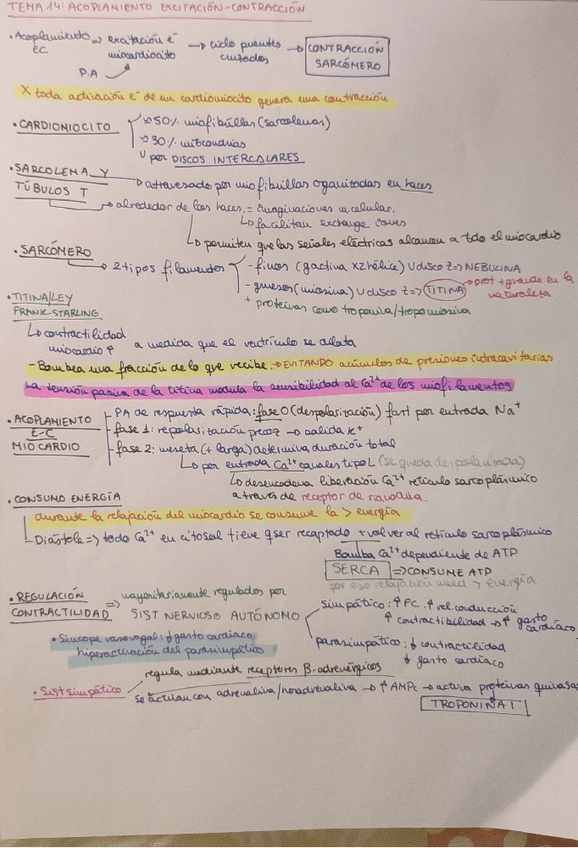 TEMA 14: ACOPLAMIENTO EXCITACIÓN-CONTRACCIÓN
· Acoplamiento EC => excitación e- miocardiocito → ciclo puentes cruzados → CONTRACCIÓN SARCÓMERO
P.A
X toda activación e- de un cardiomiocito genera una contracción
· CARDIOMIOCITO
50% miofibrillas (sarcolemas)
30% mitocondrias
U por DISCOS INTERCALARES
· SARCOLEMA Y TÚBULOS T
→ atravesado por miofibrillas organizadas en haces
→ alrededor de esos haces = invaginaciones m.celular.
↳ facilitan exchange iones
↳ permiten que las señales eléctricas alcancen a todo el miocardio
· SARCÓMERO → 2 tipos filamentos
- finos (gactina x2 hélice) U disco Z => NEBULINA
- gruesos (miosina) U disco Z => TITINA → prot + grande en la naturaleza
+ proteínas como troponina/tropomiosina
· TITINA/LEY FRANK-STARLING
↳ contractilidad miocardio ↑ a medida que el ventrículo se dilata
- Bombea una fracción de lo que recibe → EVITANDO acúmulos de presiones intracavitarias
La tensión pasiva de la titina modula la sensibilidad al Ca2+ de los miofilamentos
· ACOPLAMIENTO E-C MIOCARDIO
- PA de respuesta rápida: fase 0 (despolarización) fast por entrada Na+
- fase 1: repolarización precoz → salida K+
- fase 2: meseta (+ larga) determina duración total
↳ por entrada Ca2+ canales tipo L (se queda despolarizada)
↳ desencadena liberación Ca2+ retículo sarcoplásmico a través de receptor de rianodina.
· CONSUMO ENERGÍA
durante la relajación del miocardio se consume la > energía
Diástole => todo Ca2+ en citosol tiene q ser recaptado + volver al retículo sarcoplásmico
Bomba Ca2+ dependiente de ATP
SERCA => CONSUME ATP
por eso relajación need > energía
· REGULACIÓN CONTRACTILIDAD => mayoritariamente regulados por SIST NERVIOSO AUTÓNOMO
simpático: ↑ FC, ↑ vel. conducción
↑ contractibilidad → ↑ gasto cardíaco
parasimpático: ↓ contractilidad
↓ gasto cardíaco
· Síncope vasovagal: ↓ gasto cardíaco
hiperactivación del parasimpático
· Sist simpático
regula mediante receptores β-adrenérgicos
se activan con adrenalina/noradrenalina → ↑ AMPc → activa proteínas quinasas
TROPONINA I